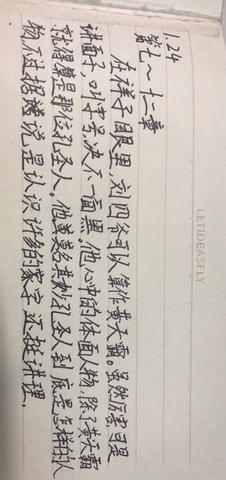 1.24
第七~十二章
在祥子眼里,刘四爷可以算作黄天霸。虽然厉害,可是
讲面子,叫字号,决不一面黑。他心中的体面人物,除了黄天霸
就得算是那位孔圣人。他莫名其妙孔圣人到底是怎样的人
物,不过据说是认识许多的字,还挺讲理。
LETIDEASFLY